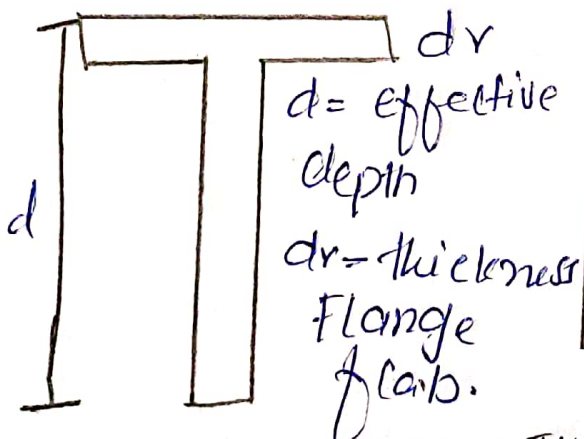 dr
d= effective
depth
d
dr- thickness
Flange